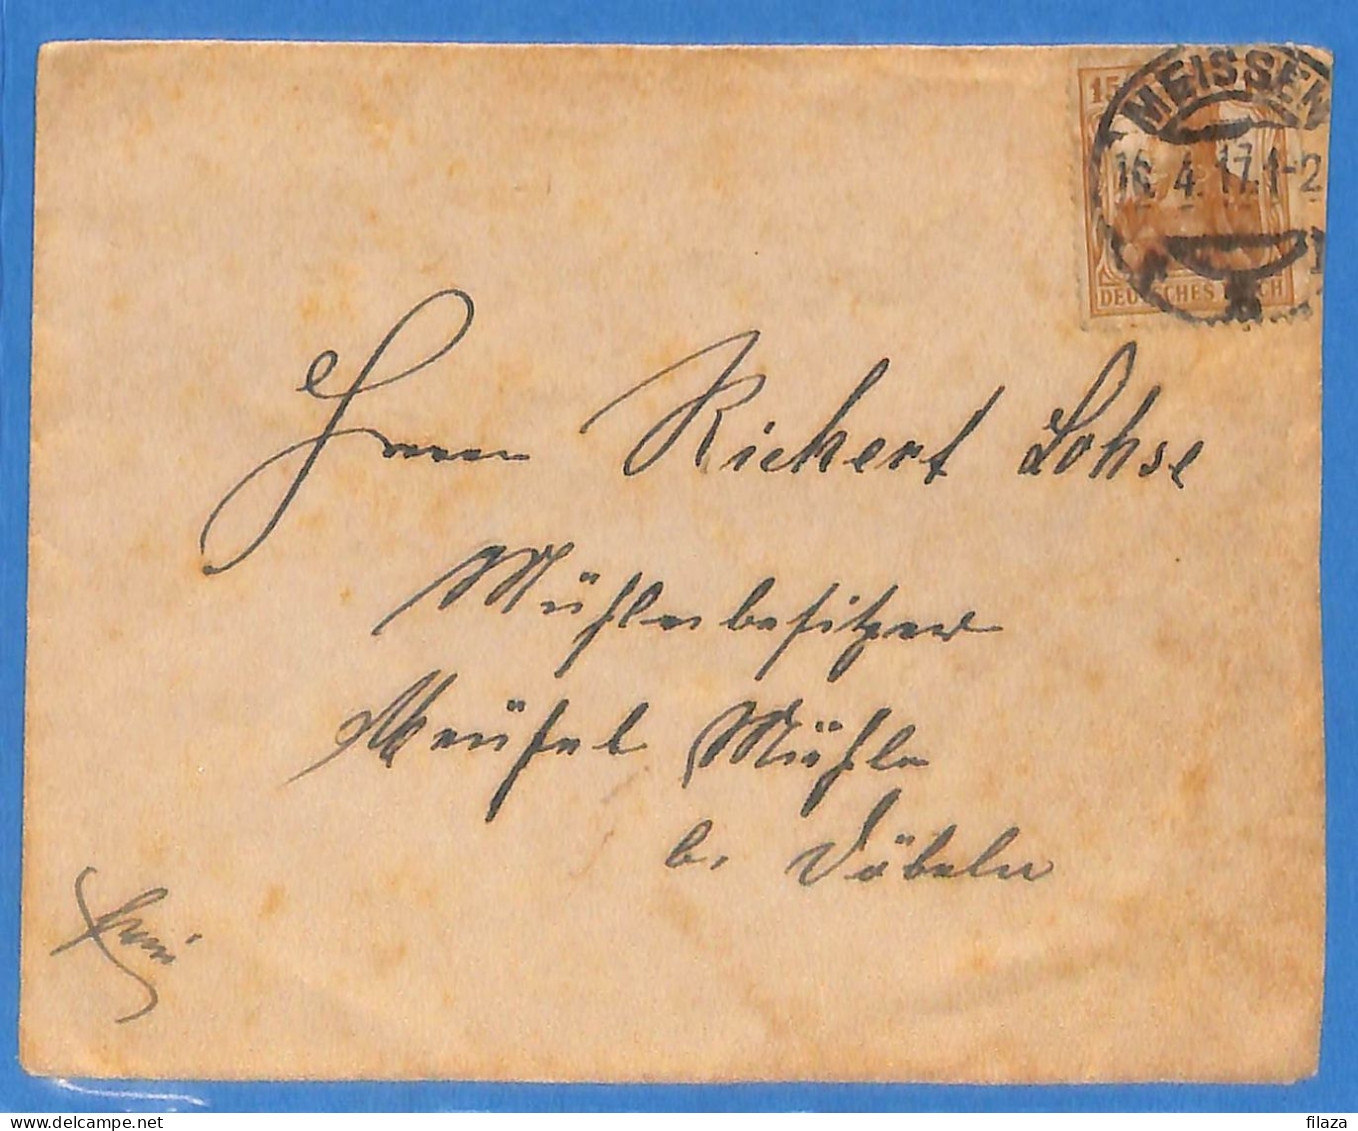 15
MEISSEN
16. 4. 17. 1-2
DEUTSCHES REICH
Herrn Rickert Lohse
Mühlenbesitzer
Mühle
b. Döbeln
frei
filaza